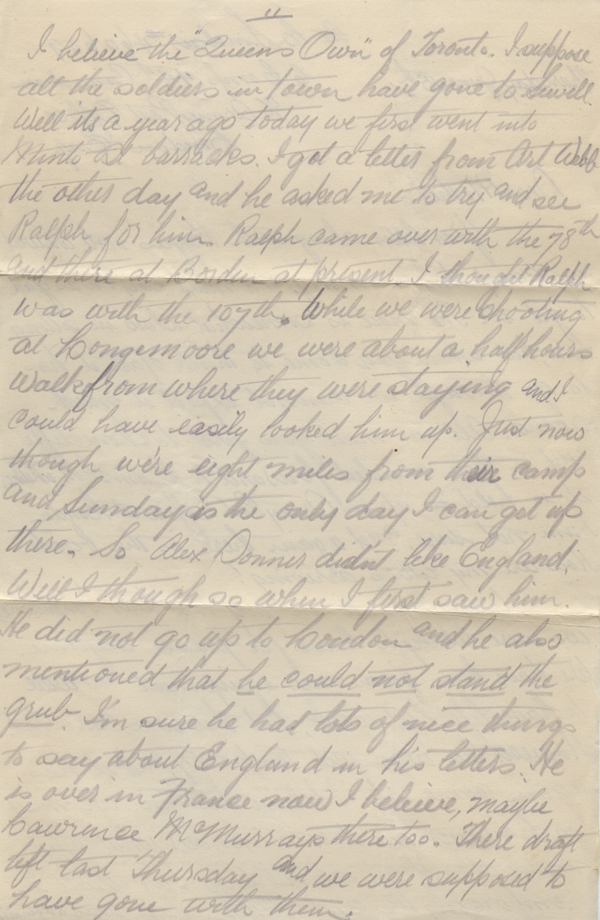 11
I believe the "Queens Own" of Toronto. I suppose
all the soldiers in town have gone to
Well its a year ago today we first went into
Minto St barracks. I got a letter from Art Webb
the other day and he asked me to try and see
Ralph for him. Ralph came over with the 78th
and there at Borden at present. I thought Ralph
was with the 107th. While we were shooting
at Longmoore we were about a half hours
walk from where they were staying and I
could have easily looked him up. Just now
though we're eight miles from their camp
and Sunday is the only day I can get up
there. So Alex Donner didn't like England.
Well I though so when I first saw him.
He did not go up to London and he also
mentioned that he could not stand the
grub. I'm sure he had lots of nice things
to say about England in his letters. He
is over in France now I believe, maybe
Lawrence McMurrays there too. There draft
left last Thursday and we were supposed to
have gone with them.